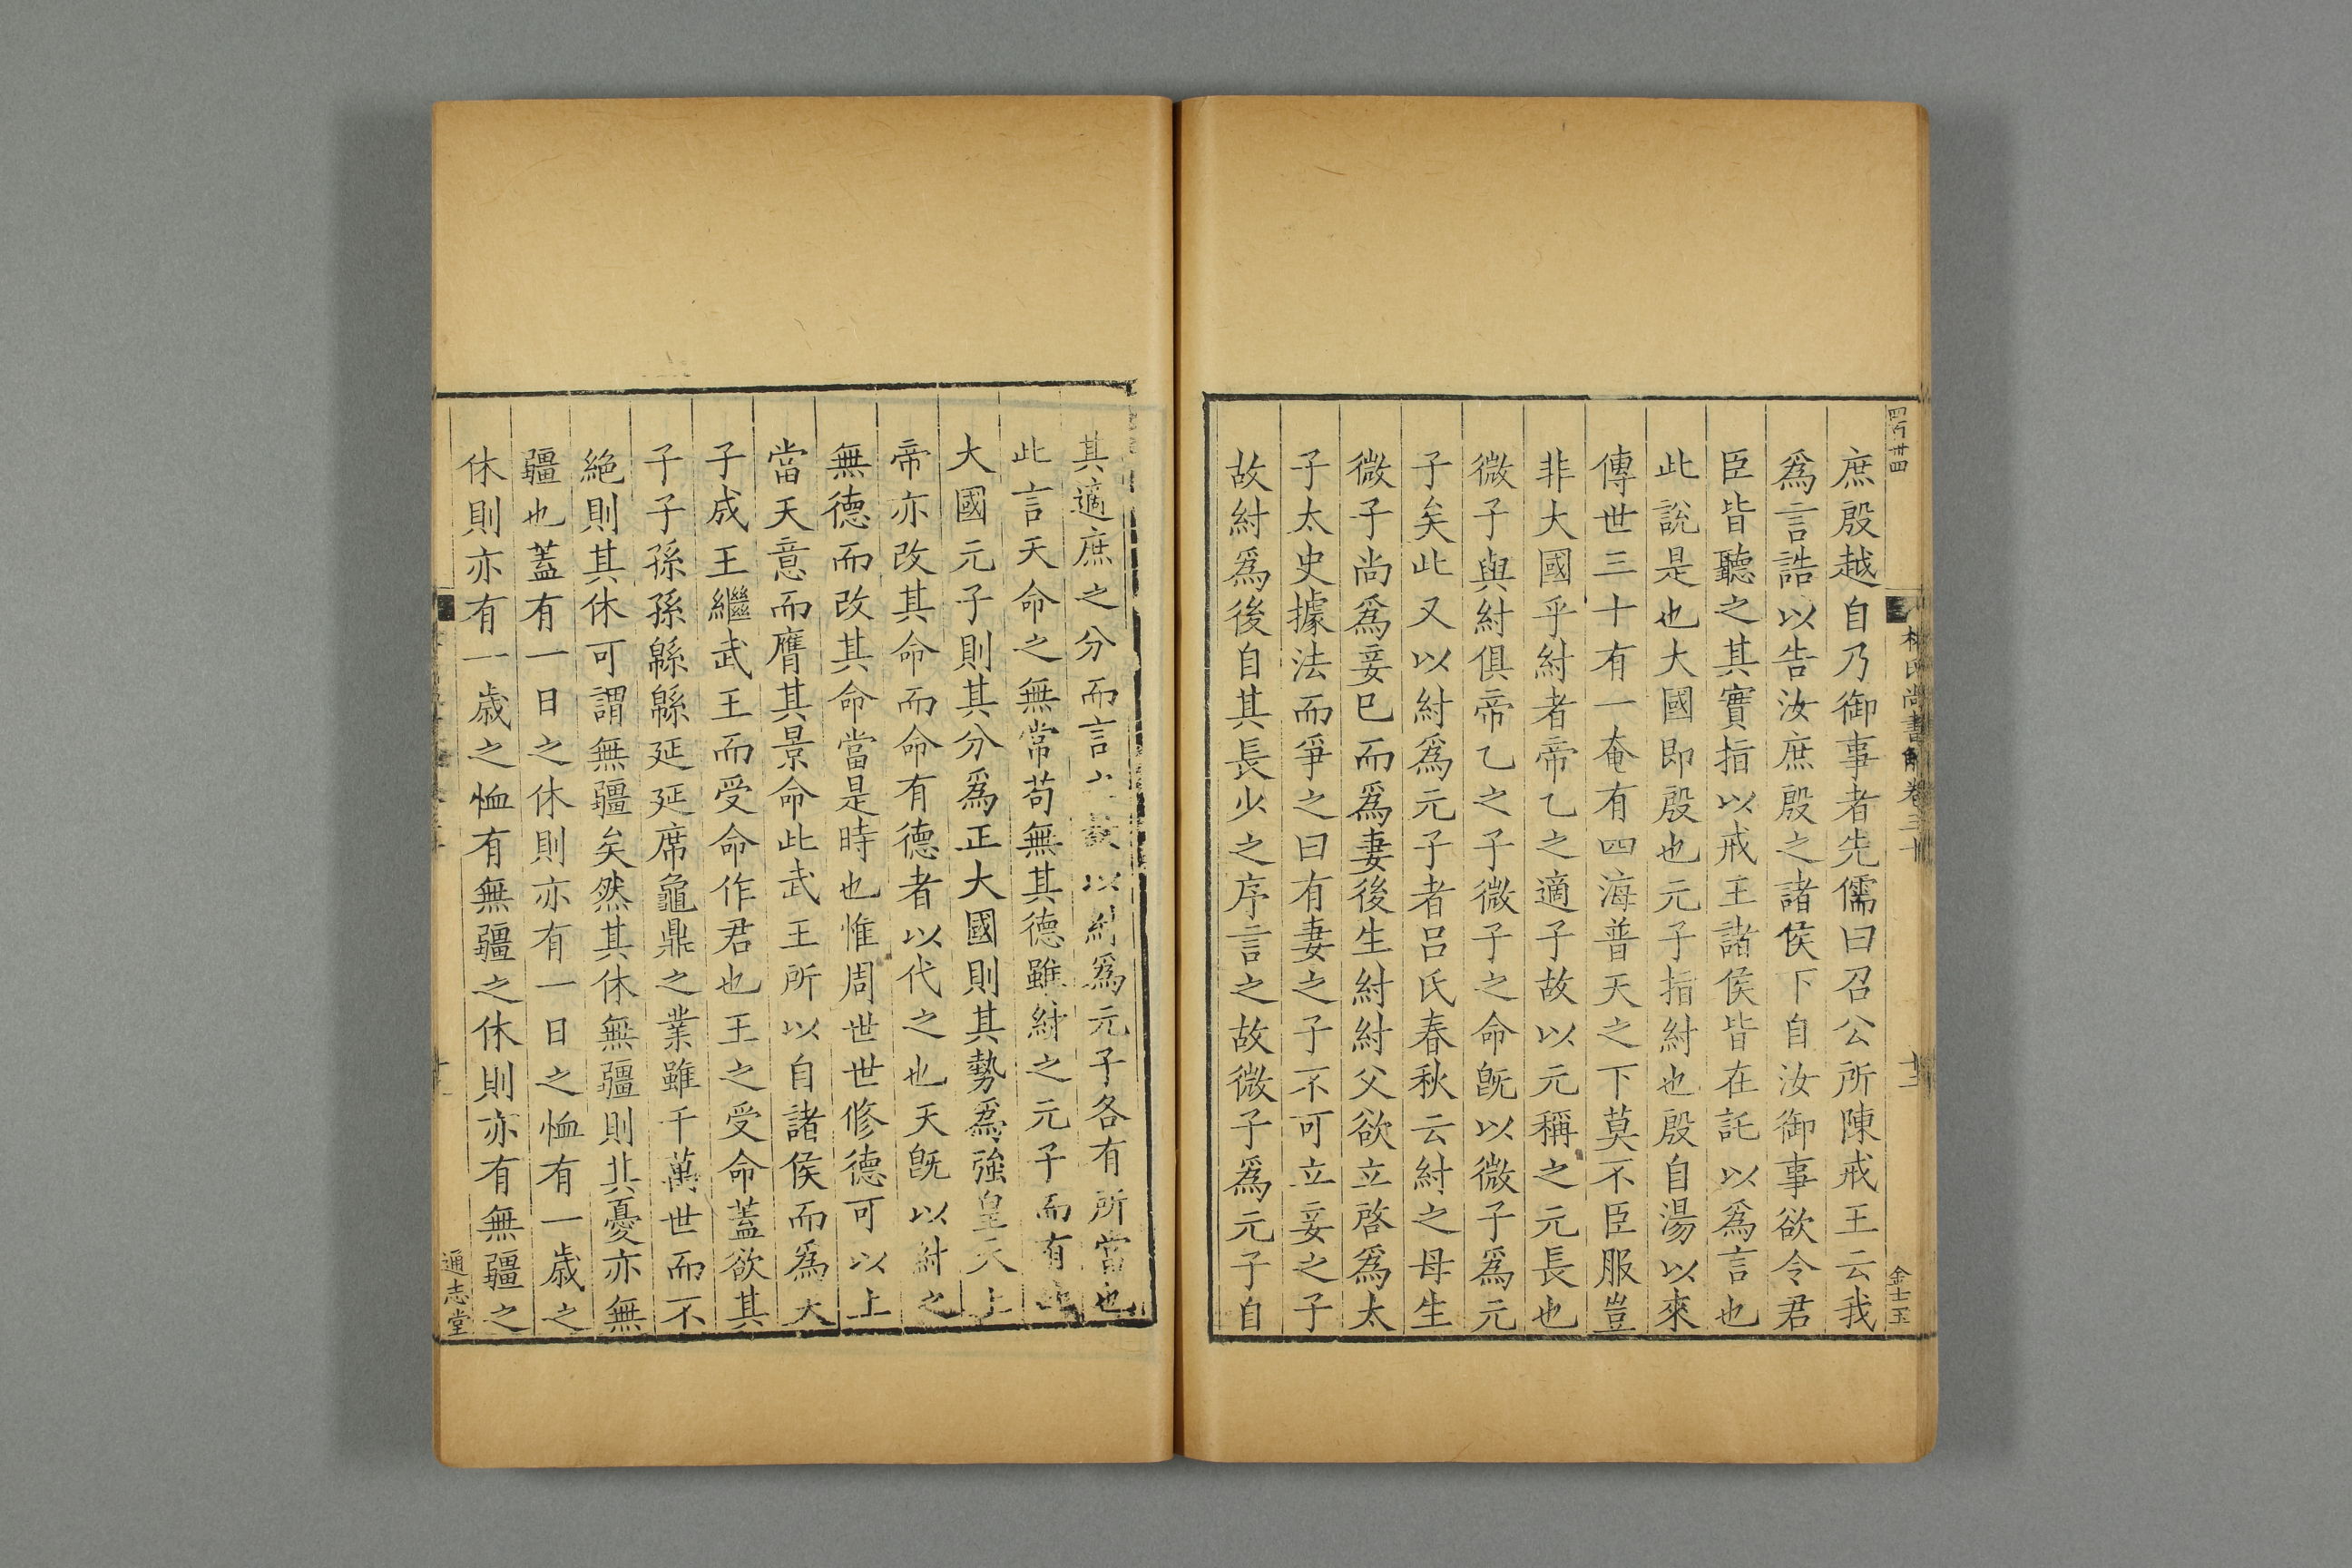 林氏尚書解卷三十
金士玉
庶殷越自乃御事者先儒曰召公所陳戒王云我
爲言誥以告汝庶殷之諸侯下自汝御事欲令君
臣皆聽之其實指以戒王諸侯皆在託以爲言也
此說是也大國即殷也元子指紂也殷自湯以來
傳世三十有一奄有四海普天之下莫不臣服豈
非大國乎紂者帝乙之適子故以元稱之元長也
微子與紂俱帝乙之子微子之命旣以微子爲元
子矣此又以紂爲元子者呂氏春秋云紂之母生
微子尚爲妾巳而爲妻後生紂紂父欲立啓爲太
子太史據法而爭之曰有妻之子不可立妾之子
故紂爲後自其長少之序言之故微子爲元子自
其適庶之分而言之故以紂爲元子各有所當也
此言天命之無常苟無其德雖紂之元子而有
大國元子則其分爲正大國則其勢爲強皇天上
帝亦改其命而命有德者以代之也天旣以紂之
無德而改其命當是時也惟周世世修德可以上
當天意而膺其景命此武王所以自諸侯而爲大
子成王繼武王而受命作君也王之受命蓋欲其
子子孫孫緜緜延延席龜鼎之業雖千萬世而不
絕則其休可謂無疆矣然其休無疆則其憂亦無
疆也蓋有一日之休則亦有一日之恤有一歲之
休則亦有一歲之恤有無疆之休則亦有無疆之
通志堂